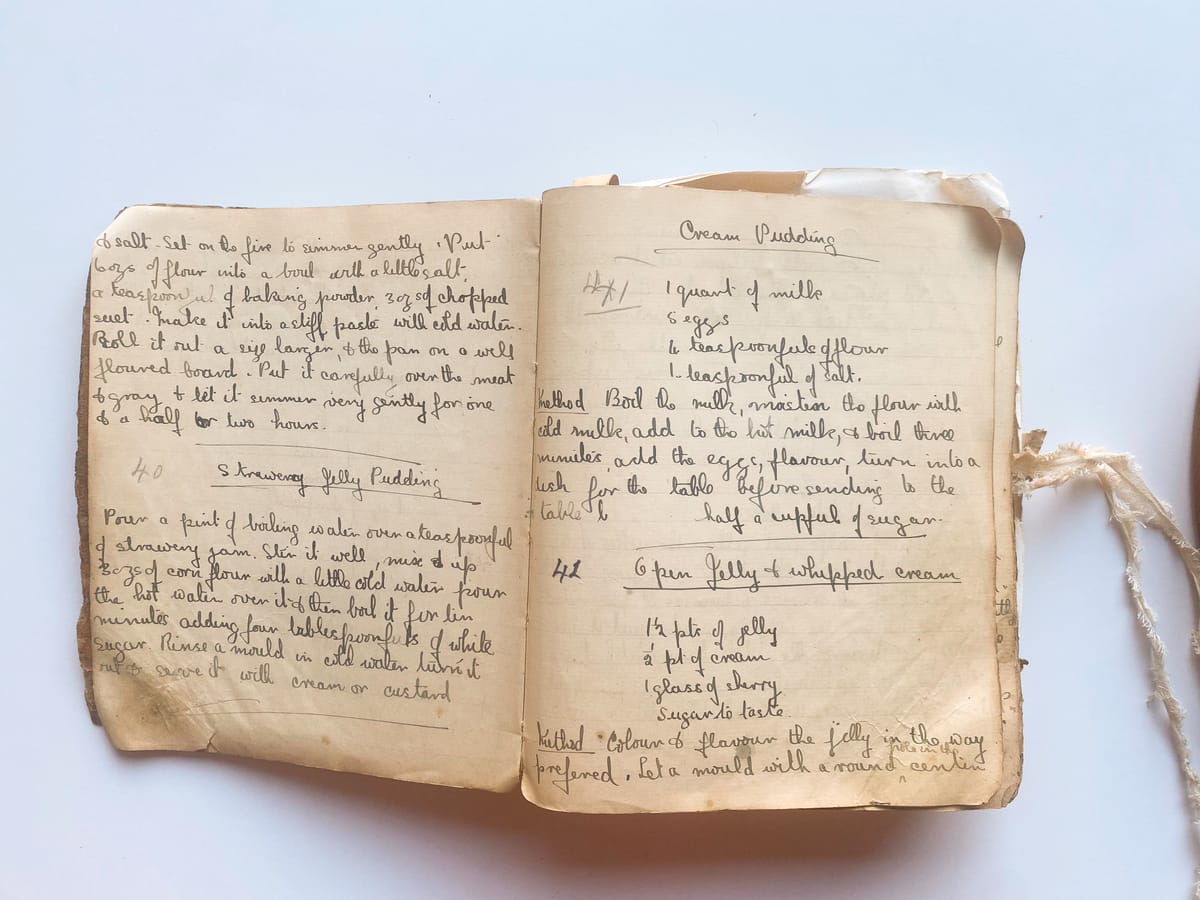 & salt - Set on the fire to simmer gently. Put
6 ozs of flour into a bowl with a little salt,
a teaspoonful of baking powder, 3 ozs of chopped
suet. Make it into a stiff paste with cold water.
Roll it out a size larger, & the pan on a well
floured board. Put it carefully over the meat
& gravy & let it simmer very gently for one
& a half or two hours.
40
Strawery Jelly Pudding
Pour a pint of boiling water over a teaspoonful
of strawery jam. Stir it well, mix up
3 ozs of corn flour with a little cold water pour
the hot water over it & then boil it for ten
minutes adding four tablespoonfuls of white
sugar. Rinse a mould in cold water turn it
out & serve it with cream or custard
Cream Pudding
41
1 quart of milk
eggs
4 teaspoonfuls of flour
1 teaspoonful of salt.
Method Boil the milk, moisten the flour with
cold milk, add to the hot milk, & boil three
minutes, add the eggs, flavour, turn into a
dish for the table before sending to the
table half a cupful of sugar.
42
Open Jelly & whipped cream
1½ pts of jelly
½ pt of cream
1 glass of sherry
Sugar to taste.
Method Colour & flavour the jelly in the way
hole in the
prefered. Let a mould with a round center